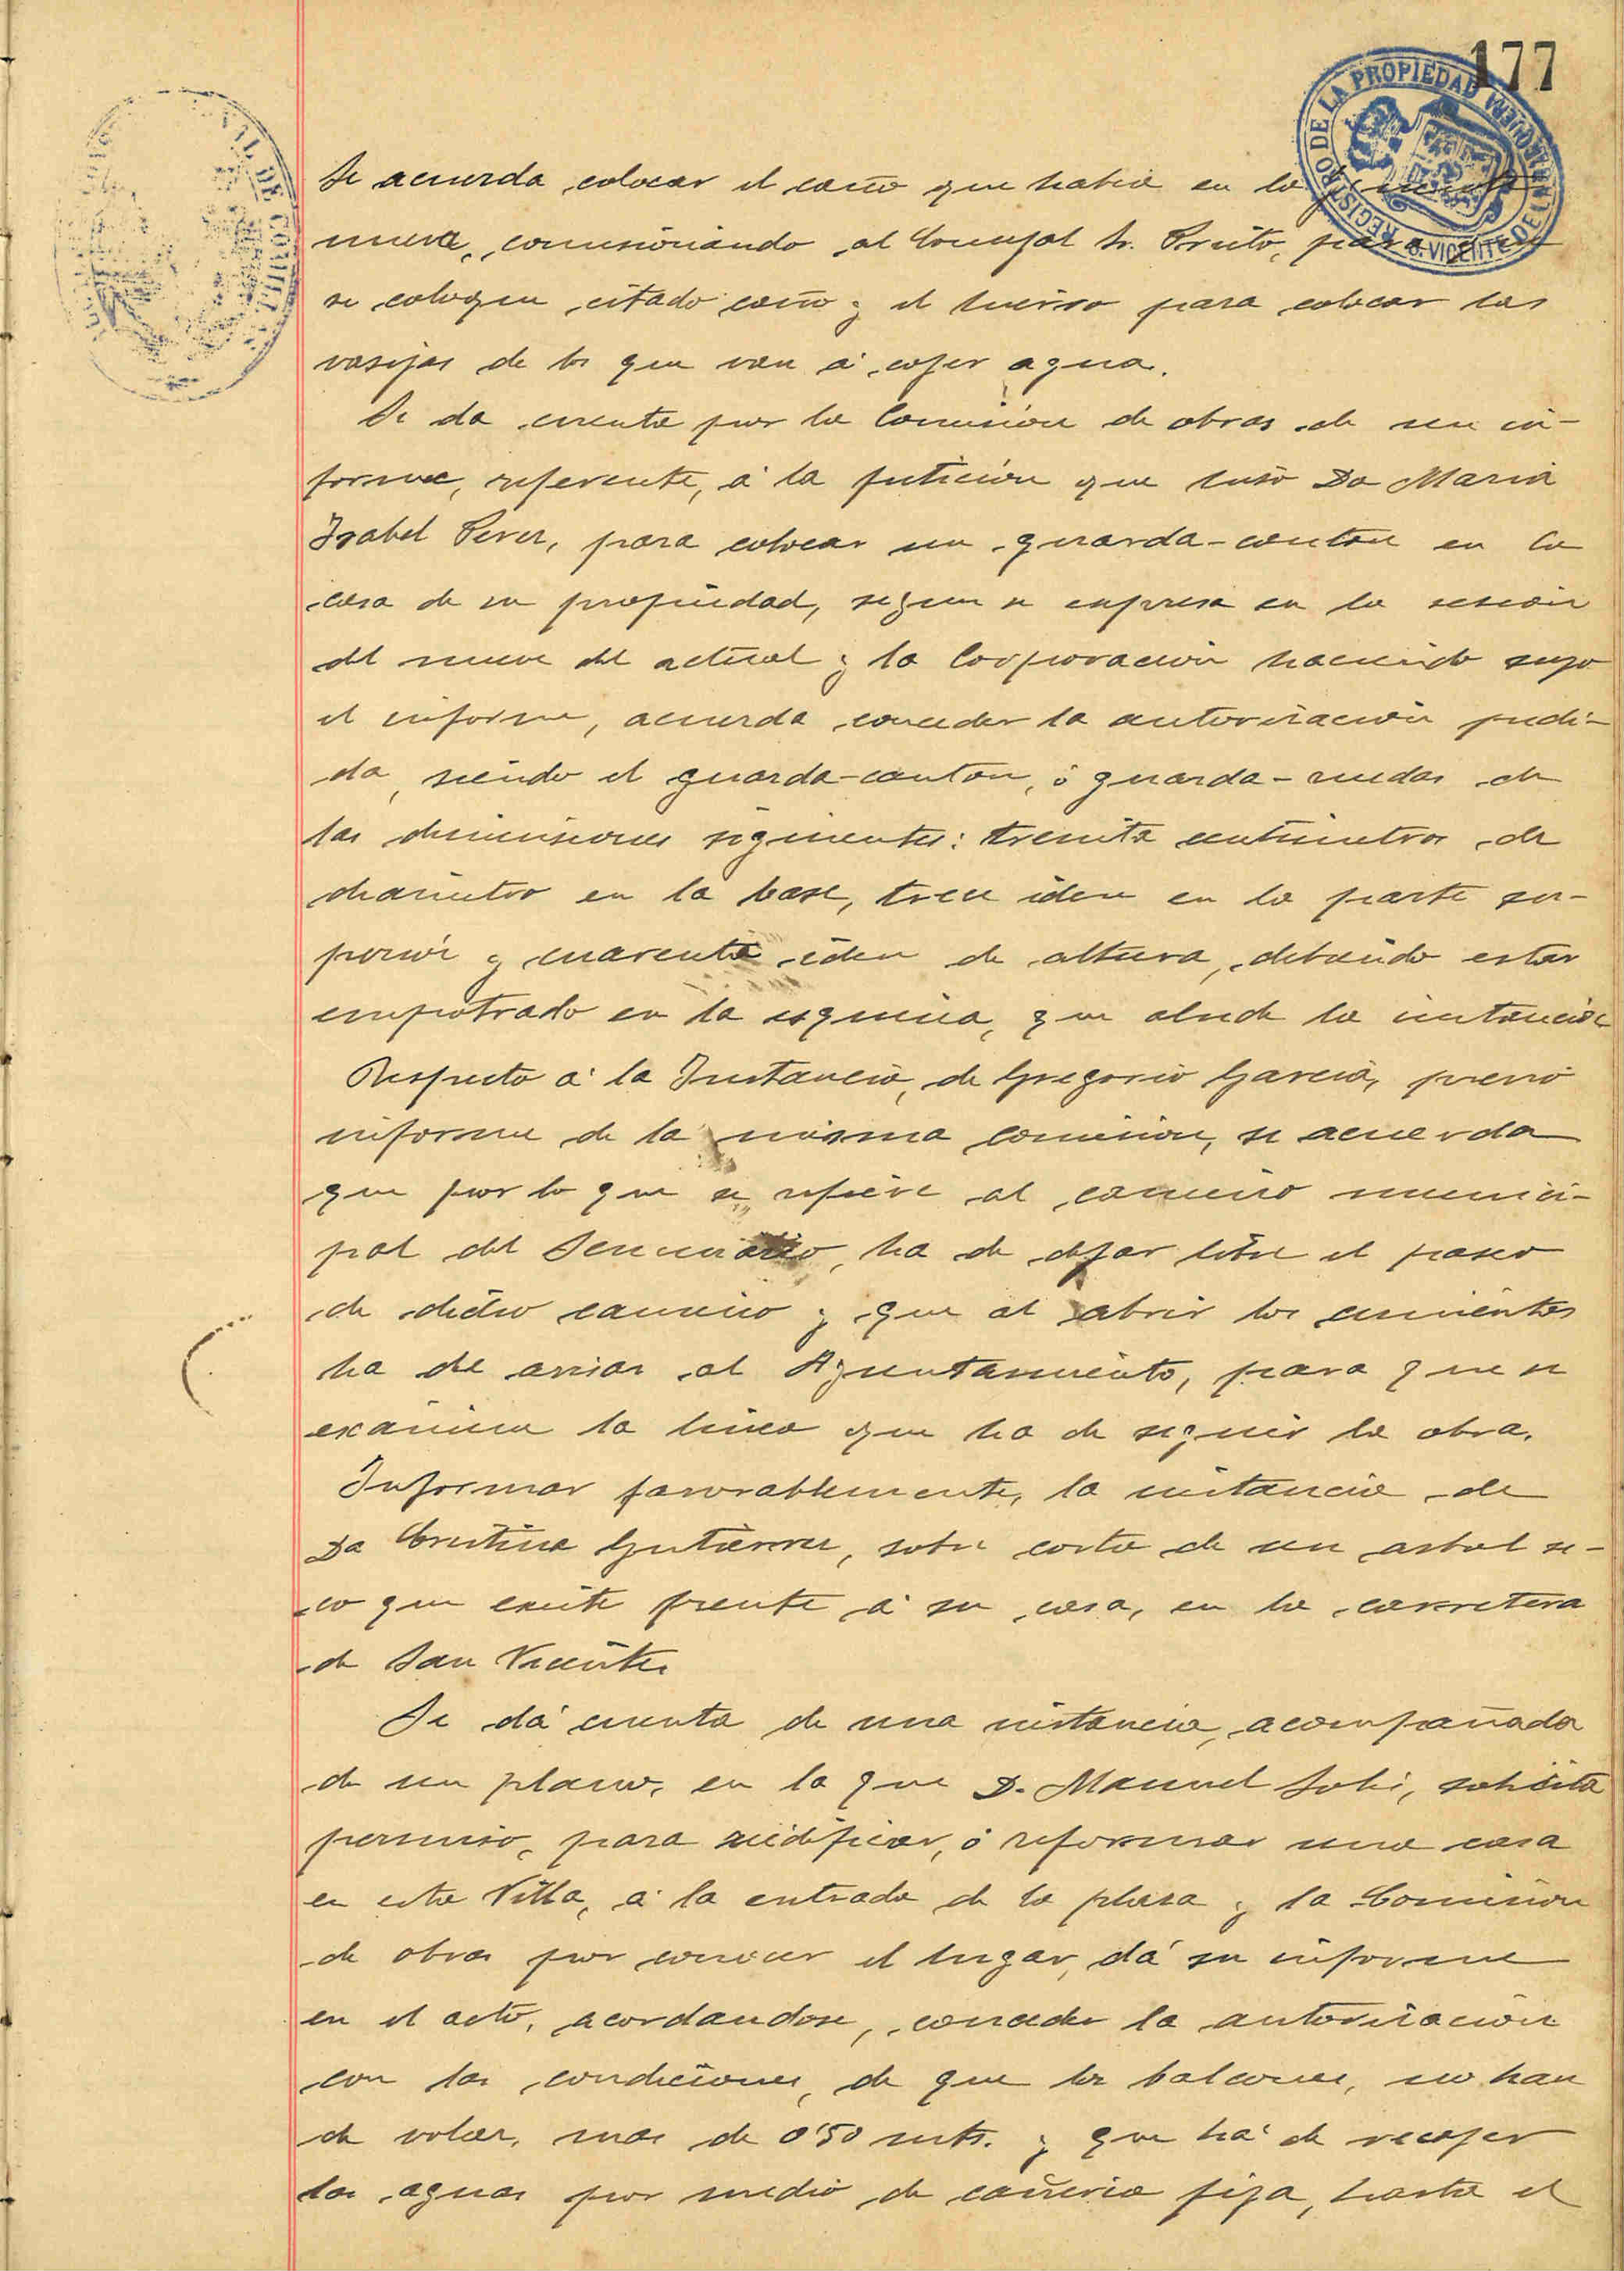 177
REGISTRO DE LA PROPIEDAD
S. VICENTE DE LA BARQUERA
Se acuerda colocar el caño que habia en la fuente
nueva, comisionando al Concejal Sr. Prieto, para que
se coloque citado caño y el hierro para colocar las
vasijas de los que van á cojer agua.
Se da cuenta por la Comisión de obras de un in-
forme, referente, á la petición que hizo Da Maria
Isabel Perez, para colocar un guarda-canton en la
casa de su propiedad, segun se expresa en la sesión
del nueve del actual y la Corporación haciendo suyo
el informe, acuerda conceder la autorización pedi-
da, siendo el guarda-canton, ó guarda-ruedas de
las dimensiones siguientes: treinta centimetros de
diametro en la base, trece idem en la parte su-
perior y cuarenta idem de altura, debiendo estar
empotrado en la esquina, que alude la instancia
Respecto á la Instancia, de Gregorio Garcia, previo
informe de la misma comision, se acuerda
que por lo que se refiere al camino munici-
pal del Seminario, ha de dejar libre el paseo
de dicho camino y que al abrir los cimientos
ha de avisar al Ayuntamiento, para que se
examine la linea que ha de seguir la obra.
Informar favorablemente, la instancia de
Da Cristina Gutierrez, sobre corta de un arbol se-
co que existe frente á su casa, en la carretera
de San Vicente.
Se dá cuenta de una instancia, acompañada
de un plano, en la que D. Manuel Solis, solicita
permiso, para reedificar, ó reformar una casa
en esta Villa, á la entrada de la plaza y la Comision
de obras por conocer el lugar, dá su informe
en el acto, acordandose, conceder la autorización
con las condiciones, de que los balcones, no han
de volar, mas de 0'50 mts. y que há de recojer
las aguas por medio de cañeria fija, hasta el